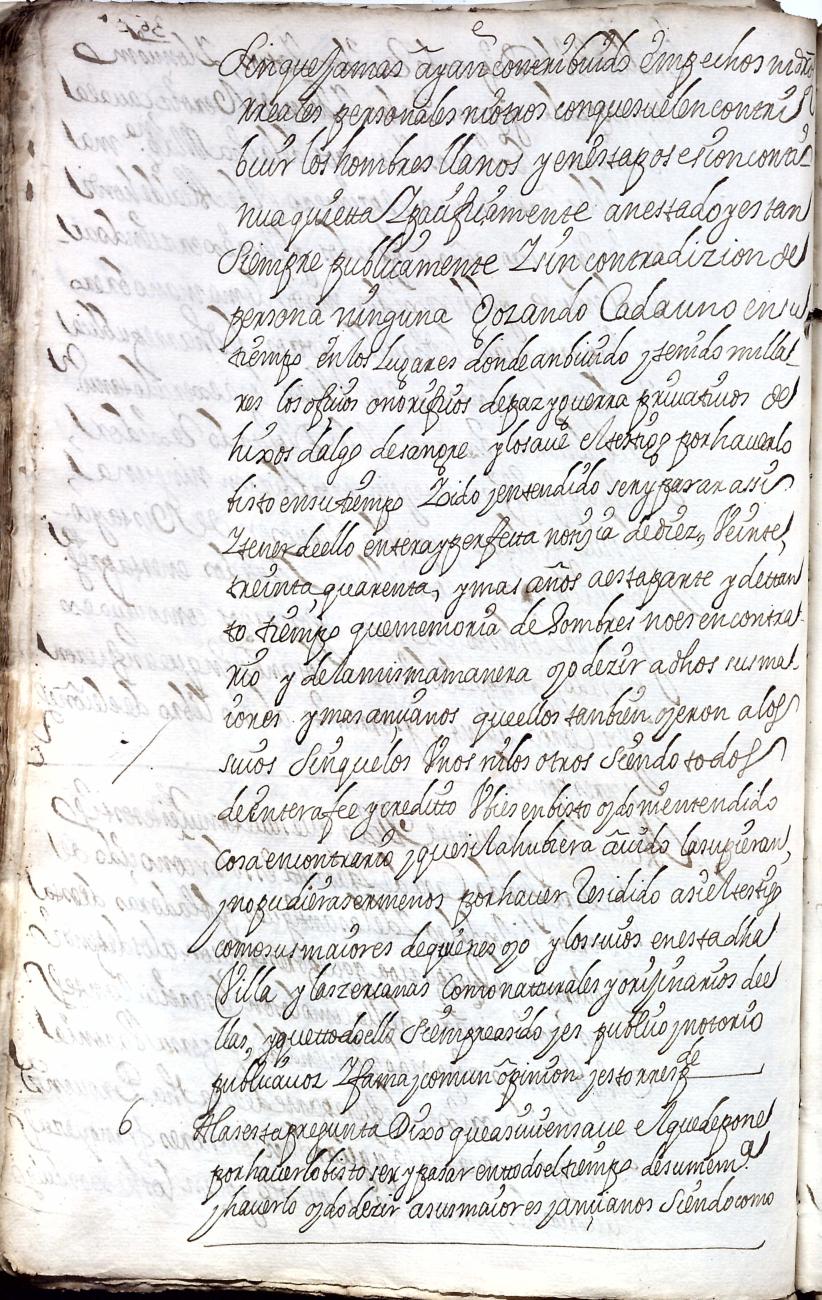 sin que Jamas ayan contribuido en pechos ni dros
rreales personales ni otros con que suelen contri
buir los hombres llanos y en esta posesion conti
nua quietta y pacificamente an estado y estan
siempre publicamente y sin contradizion de
persona ninguna Gozando Cada uno en su
tiempo en los lugares donde an biuido y tenido milla
res los ofizios onorificos de paz y guerra priuatiuos de
hixos dalgo de sangre y lo saue el testigo por hauerlo
bisto en su tiempo y oido y entendido ser y pasar assi
y tener de ello entera y perfetta notizia de diez, Veinte,
treinta, quarenta, y mas años a esta parte y de ttan
to tiempo que memoria de hombres no es en contra
rio y de la misma manera oyo dezir a dhos sus ma
iores y mas anzianos que ellos tambien oyeron a los
suios sin que los Vnos ni los otros siendo todos
de entera fee y creditto Vbiesen bisto oydo ni entendido
cosa en contrario y que si la hubiera auido la supieran,
y no pudiera ser menos por hauer Residido asi el testigo
como sus maiores de quienes oyo y los suios en esta dha
Villa y las zercanas como naturales y orijinarios de e
llas, y que ttodo ello siempre a sido y es publico y notorio
publica voz y fama y comun opinion y esto rresp.de
6 A la sesta pregunta Dixo que asimismo saue el que depone
por hauerlo bisto ser y pasar en ttodo el tiempo de su mem.a
y hauerlo oydo dezir a sus maiores y anzianos siendo como